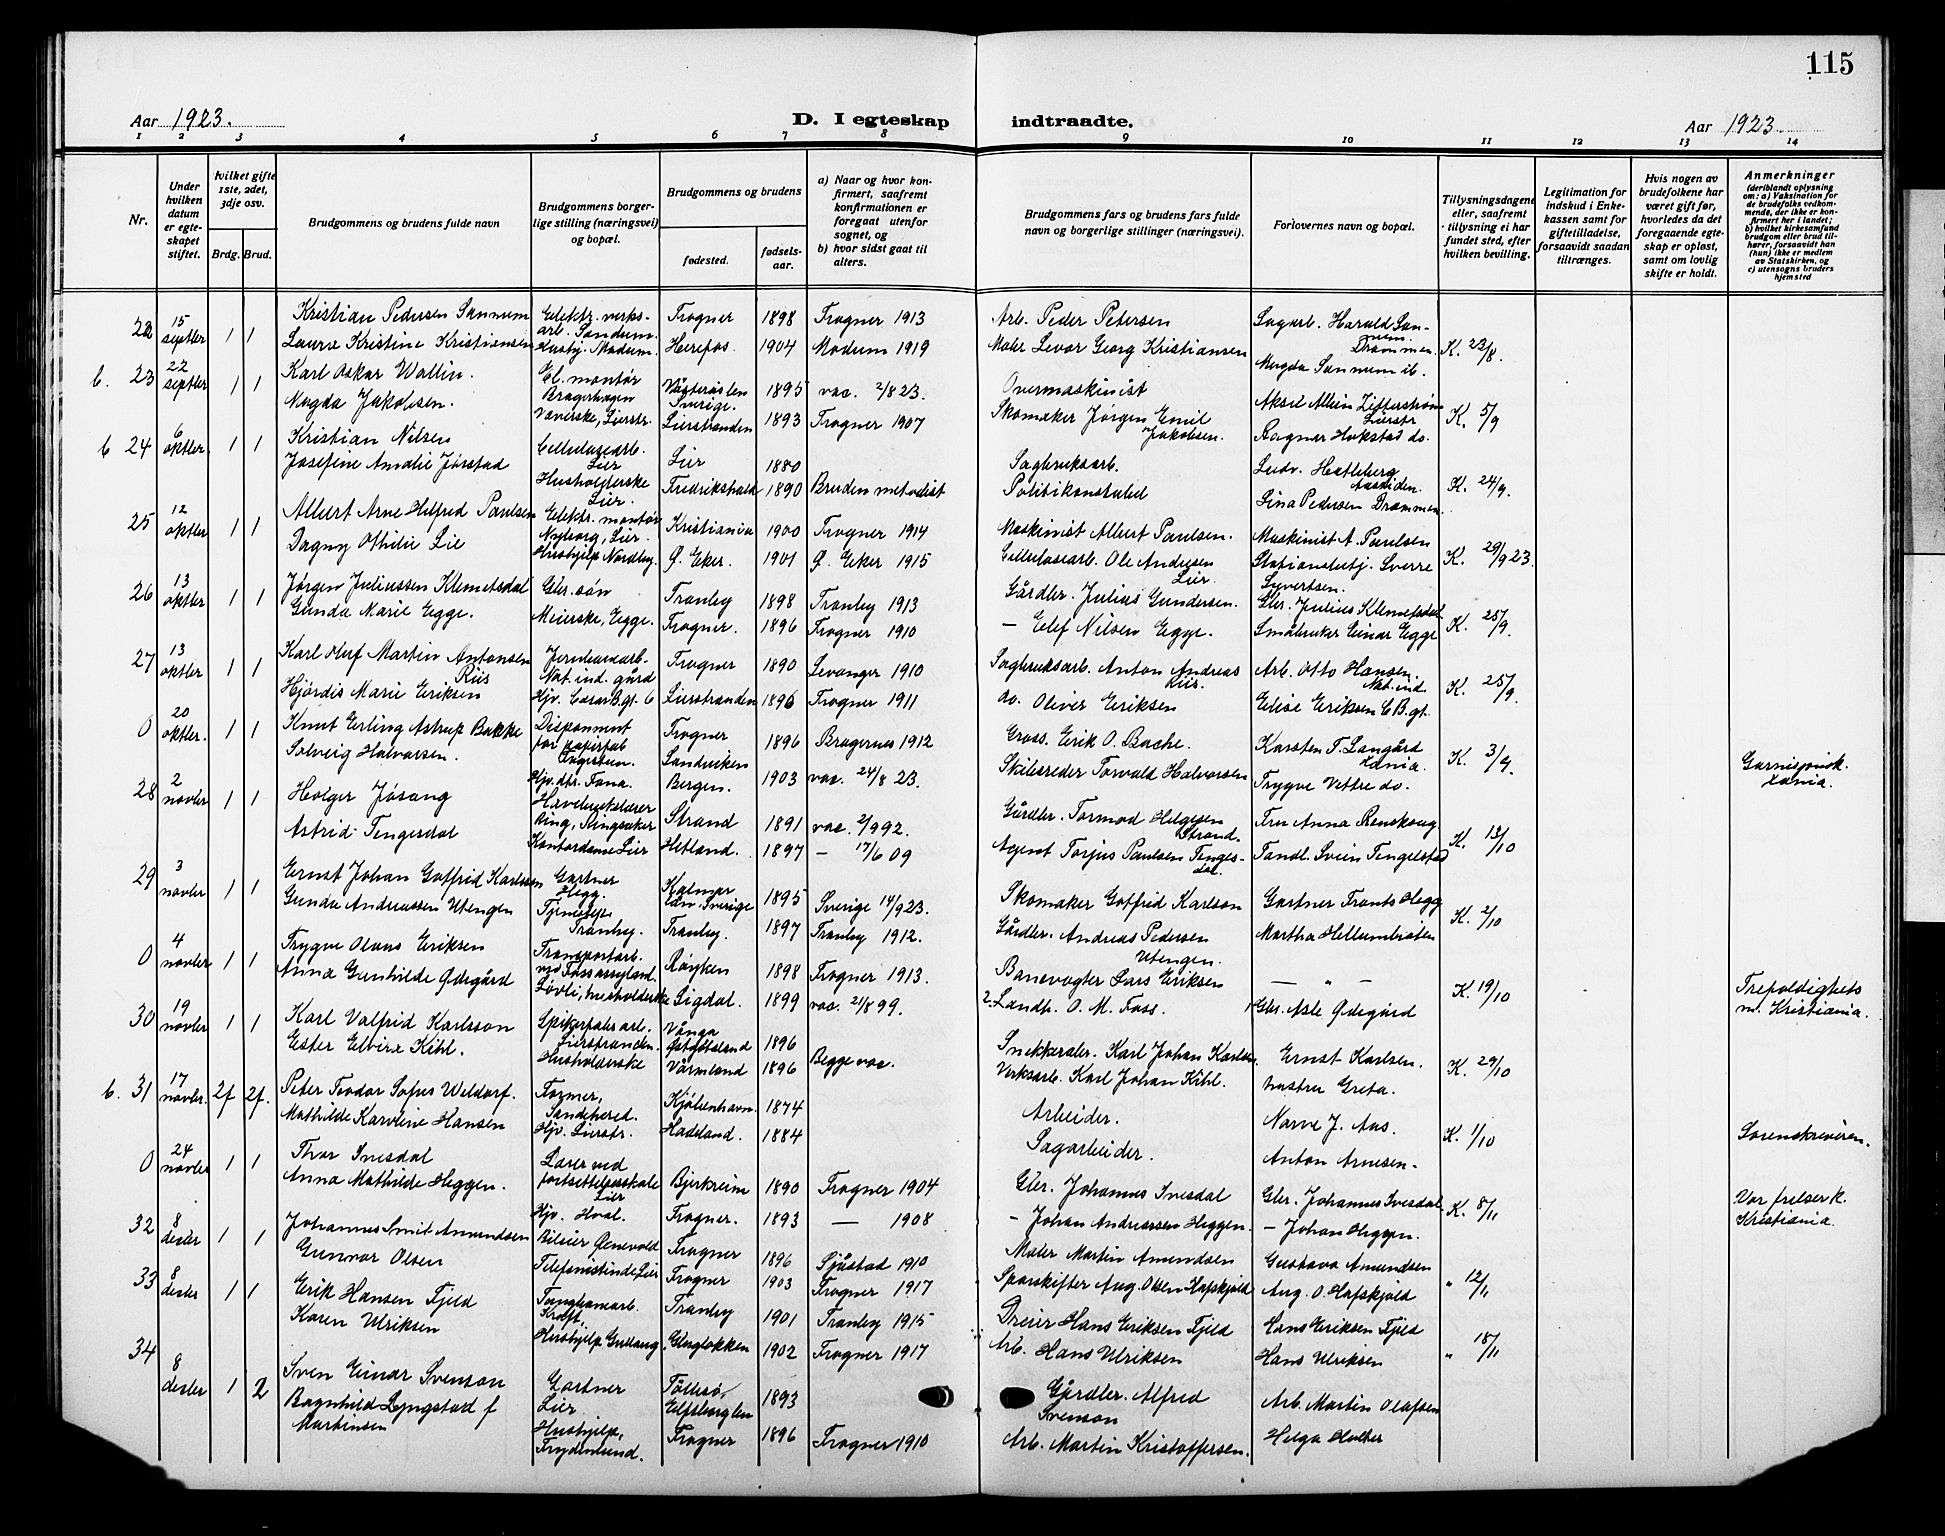 115
Aar 1923.
D. I egteskap indtraadte.
Aar 1923.
1 2 3 4 5 6 7 8 9 10 11 12 13 14
Nr.
Under hvilken datum er egteskapet stiftet.
hvilket gifte 1ste, 2det, 3dje osv.
Brdg. Brud.
Brudgommens og brudens fulde navn
Brudgommens borgerlige stilling (næringsvei) og bopæl.
Brudgommens og brudens
fødested. fødselsaar.
a) Naar og hvor konfirmert, saafremt konfirmationen er foregaat utenfor sognet, og
b) hvor sidst gaat til alters.
Brudgommens fars og brudens fars fulde navn og borgerlige stillinger (næringsvei).
Forlovernes navn og bopæl.
Tillysningsdagene eller, saafremt tillysning ei har fundet sted, efter hvilken bevilling.
Legitimation for indskud i Enkekassen samt for giftetilladelse, forsaavidt saadan tiltrænges.
Hvis nogen av brudefolkene har været gift før, hvorledes da det foregaaende egteskap er opløst, samt om lovlig skifte er holdt.
Anmerkninger
(deriblandt oplysning om: a) Vaksination for de brudefolks vedkommende, der ikke er konfirmert her i landet;
b) hvilket kirkesamfund brudgom eller brud tilhører, forsaavidt han (hun) ikke er medlem av Statskirken, og
c) utensogns bruders hjemsted
22 15 septbr 1 1 Kristian Pedersen Sannum Elektr. verksarb. Sandum. Frogner 1898 Frogner 1913 Arb. Peder Petersen Sagarb. Harald Sannum. Drammen. K. 23/8.
Laura Kristine Kristiansen Hushj. Modum. Herefos. 1904 Modum 1919 Maler Levor Georg Kristiansen Magda Sannum ib.
b. 23 22 septbr 1 1 Karl Oskar Wallin. El. montør Bragerhagen Västeråslen Sverige. 1895 vac. 2/8 23. Overmaskinist Aksel Allein Zitterstrøm Lierstr K. 5/9
Magda Jakobsen. Væverske, Lierstr. Lierstranden 1893 Frogner 1907 Skomaker Jørgen Emil Jakobsen. Ragnar Hokstad do.
b 24 6 oktbr. 1 1 Kristian Nilsen Cellulosearb. Lier Lier 1880 Sagbruksarb. Ludv. Hatleberg K. 24/9.
Josefine Amalie Jørstad Husholderske Lier. Fredrikshald 1890 Bruden metodist Politikonstabel Lina Pedersen Drammen.
25 12 oktbr 1 1 Albert Arne Hilfred Paulsen Elektr. montør Nyborg, Lier. Kristiania 1900 Frogner 1914 Maskinist Albert Paulsen. Maskinist A. Paulsen K. 29/9 23.
Dagny Othilie Lie Hushjelp Nordby. Ø. Eker. 1901 Ø. Eker 1915 Cellulosearb. Ole Andersen Lier. Stationsbetj. Sverre Syvertsen.
26 13 oktbr 1 1 Jørgen Juliussen Klemetsdal Gbr. søn Tranby 1898 Tranby 1913 Gårdbr. Julius Gundersen. Gbr. Julius Klemetsdal K. 25/9.
Gunda Marie Egge. Meierske, Egge. Frogner. 1896 Frogner 1910 — Elef Nilsen Egge. Småbruker Einar Egge
27 13 oktbr 1 1 Karl Oluf Martin Antonsen Riis Jernbanearb. Nat. ind. gård Frogner 1890 Levanger 1910 Sagbruksarb. Anton Andreas Riis. Arb. Otto Hansen. Nat. ind. K. 25/9.
Hjördis Marie Eriksen Hjv. Cesar B.gt. 6 Lierstranden 1896 Frogner 1911 do. Oliver Eriksen Elise Eriksen C B.gt.
0 20 oktbr. 1 1 Knut Erling Astrup Bakke Disponent for papirfab Frogner 1896 Bragernes 1912 Gross. Erik O. Bache. Karsten T. Langård Xania. K. 3/9. Garnisonsk. Xania.
Solveig Halvorsen. Hjv. dtr. Fana. Sandviken Bergen. 1903 vac. 24/8 23. Skibsreder Torvald Halvorsen Trygve Vettre do.
28 2 novbr 1 1 Holger Jøsang Havebrukslærer Ring, Ringsaker Strand 1891 vac. 2/9 92. Gårdbr. Tormod Helgesen Strand. Fru Anna Renskoug K. 13/10
Astrid Tengesdal Kontordame Lier Hetland. 1897 — 17/6 09 Agent Torjus Paulsen Tengesdal. Tandl. Svein Tengelstad
29 3 novbr 1 1 Ernst Johan Gotfrid Karlsson Gartner Hegg. Kalmar län Sverige 1895 Sverige 14/9 23. Skomaker Gotfrid Karlson Gartner Frants Hegg K. 2/10
Gunda Andreassen Utengen Tranby. Tranby. 1897 Tranby 1912. Gårdbr. Andreas Pedersen Utengen. Martha Hellumbråten
0 4 novbr 1 1 Trygve Olaus Eriksen Transportarb. ved Foss Røyken 1898 Frogner 1913. Banevogter Lars Eriksen — " — K. 19/10 Trefoldighets m. Kristiania.
Anna Gunhilde Ødegård Løvli, husholderske Sigdal. 1899 vac. 21/8 99. 2. Landh. O. M. Foss. 1 Gbr. Asle Ødegård
30 19 novbr 1 1 Karl Valfrid Karlsson Spikerfabr. arb. Lierstranden. Vånga Östgötaland 1896 Begge vac. Snekkerabr. Karl Johan Karlsen. Ernst Karlsen. K. 29/10
Ester Elvira Kihl. Husholderske Värmland 1896 Verksarb. Karl Johan Kihl. hustru Greta.
b. 31 17 novbr. 2f 2f. Peter Teodor Sofus Weldorf. Formier, Sandhered. Kjøbenhavn. 1874 Arbeider. Narve J. Aas. K. 1/10 Sorenskriveren.
Mathilde Karoline Hansen Hjv. Lierstr. Hadeland. 1884 Sagarbeider. Anton Arnesen.
0 24 novbr 1 1 Thor Ivesdal Lærer ved fortsettelsesskole Lier Bjerkreim 1890 Frogner 1904 Gbr. Johannes Ivesdal Gbr. Johannes Ivesdal K. 8/11 Vor frelser k. Kristiania.
Anna Mathilde Heggen. Hjv. Hval. Frogner. 1893 — 1908 — Johan Andreassen Heggen. — Johan Heggen.
32 8 desbr 1 1 Johannes Smit Amundsen Bileier Grenevold Frogner 1896 Sjåstad 1910 Maler Martin Amundsen Gustava Amundsen " 12/11
Gunvor Olsen Telefonistinde Lier Frogner 1903 Frogner 1917 Sporskifter Aug. Olsen Hafskjold Aug. O. Hafskjold
33 8 desbr 1 1 Erik Hansen Fjeld Kraft. Tranby 1901 Tranby 1915 Dreier Hans Eriksen Fjeld Hans Eriksen Fjeld " 18/11
Karen Ulriksen Hushjelp Gullaug, Glasløkken 1902 Frogner 1917 Arb. Hans Ulriksen Hans Ulriksen
34 8 desbr 1 2 Sven Einar Svenson Gartner Lier Tölleso, Elfsborg len 1893 Gårdbr. Alfred Svenson Arb. Martin Olafsen
Ragnhild Lyngstad f Martinsen Hushjelp, Frydenlund. Frogner 1896 Frogner 1910 Arb. Martin Kristoffersen. Helga Holter